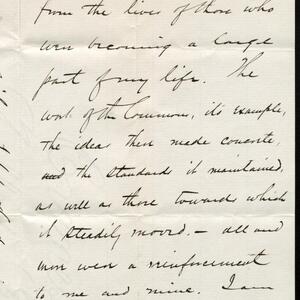 from the lives of those who
were becoming a large
part of my life. The
work of the Common, its example,
the ideas there made concrete,
and the standards it maintained,
as well as those towards which
it steadily moved – all and
more were a reinforcement
to me and mine. I am